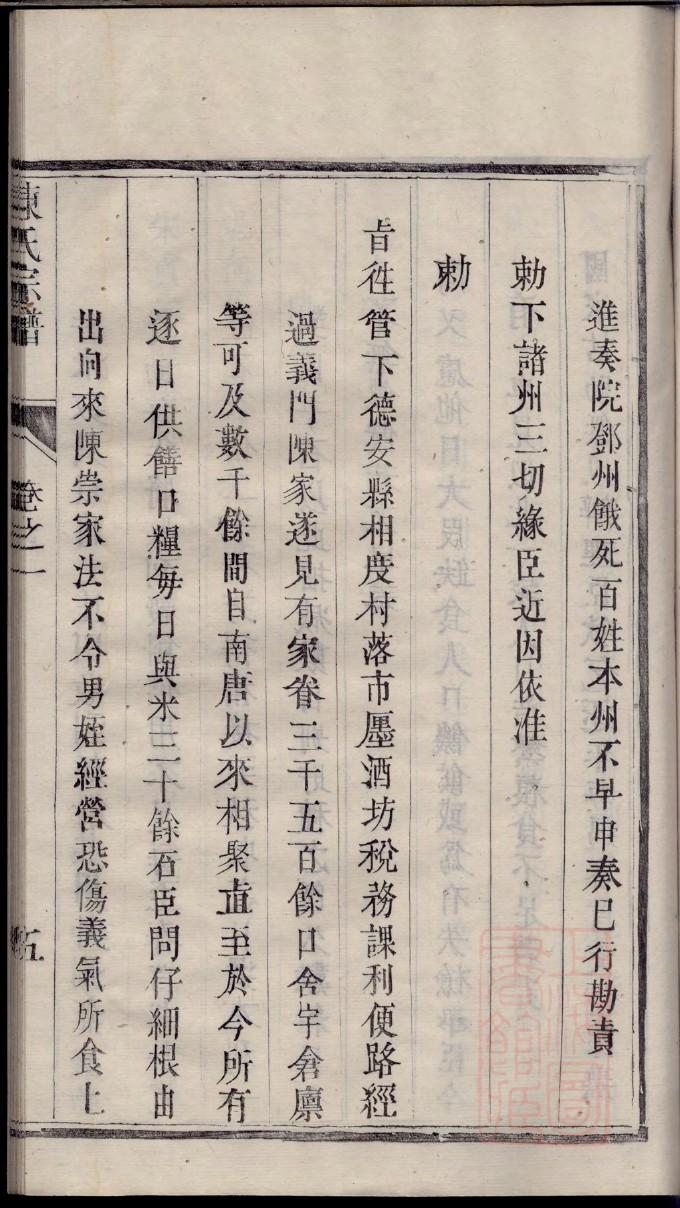 進奏院鄧州餓死百姓本州不早申奏已行勘責
勅下諸州三切緣臣近因依准
勅
旨徃管下德安縣相度村落市㕓酒坊稅務課利便路經
過義門陳家遂見有家眷三千五百餘口舍宇倉廩
等可及數千餘間自南唐以來相聚直至於今所有
逐日供饍口糧每日與米二十餘石臣問仔細根由
出向來陳崇家法不令男姪經營恐傷義氣所食上
陳氏宗譜
卷之一
五